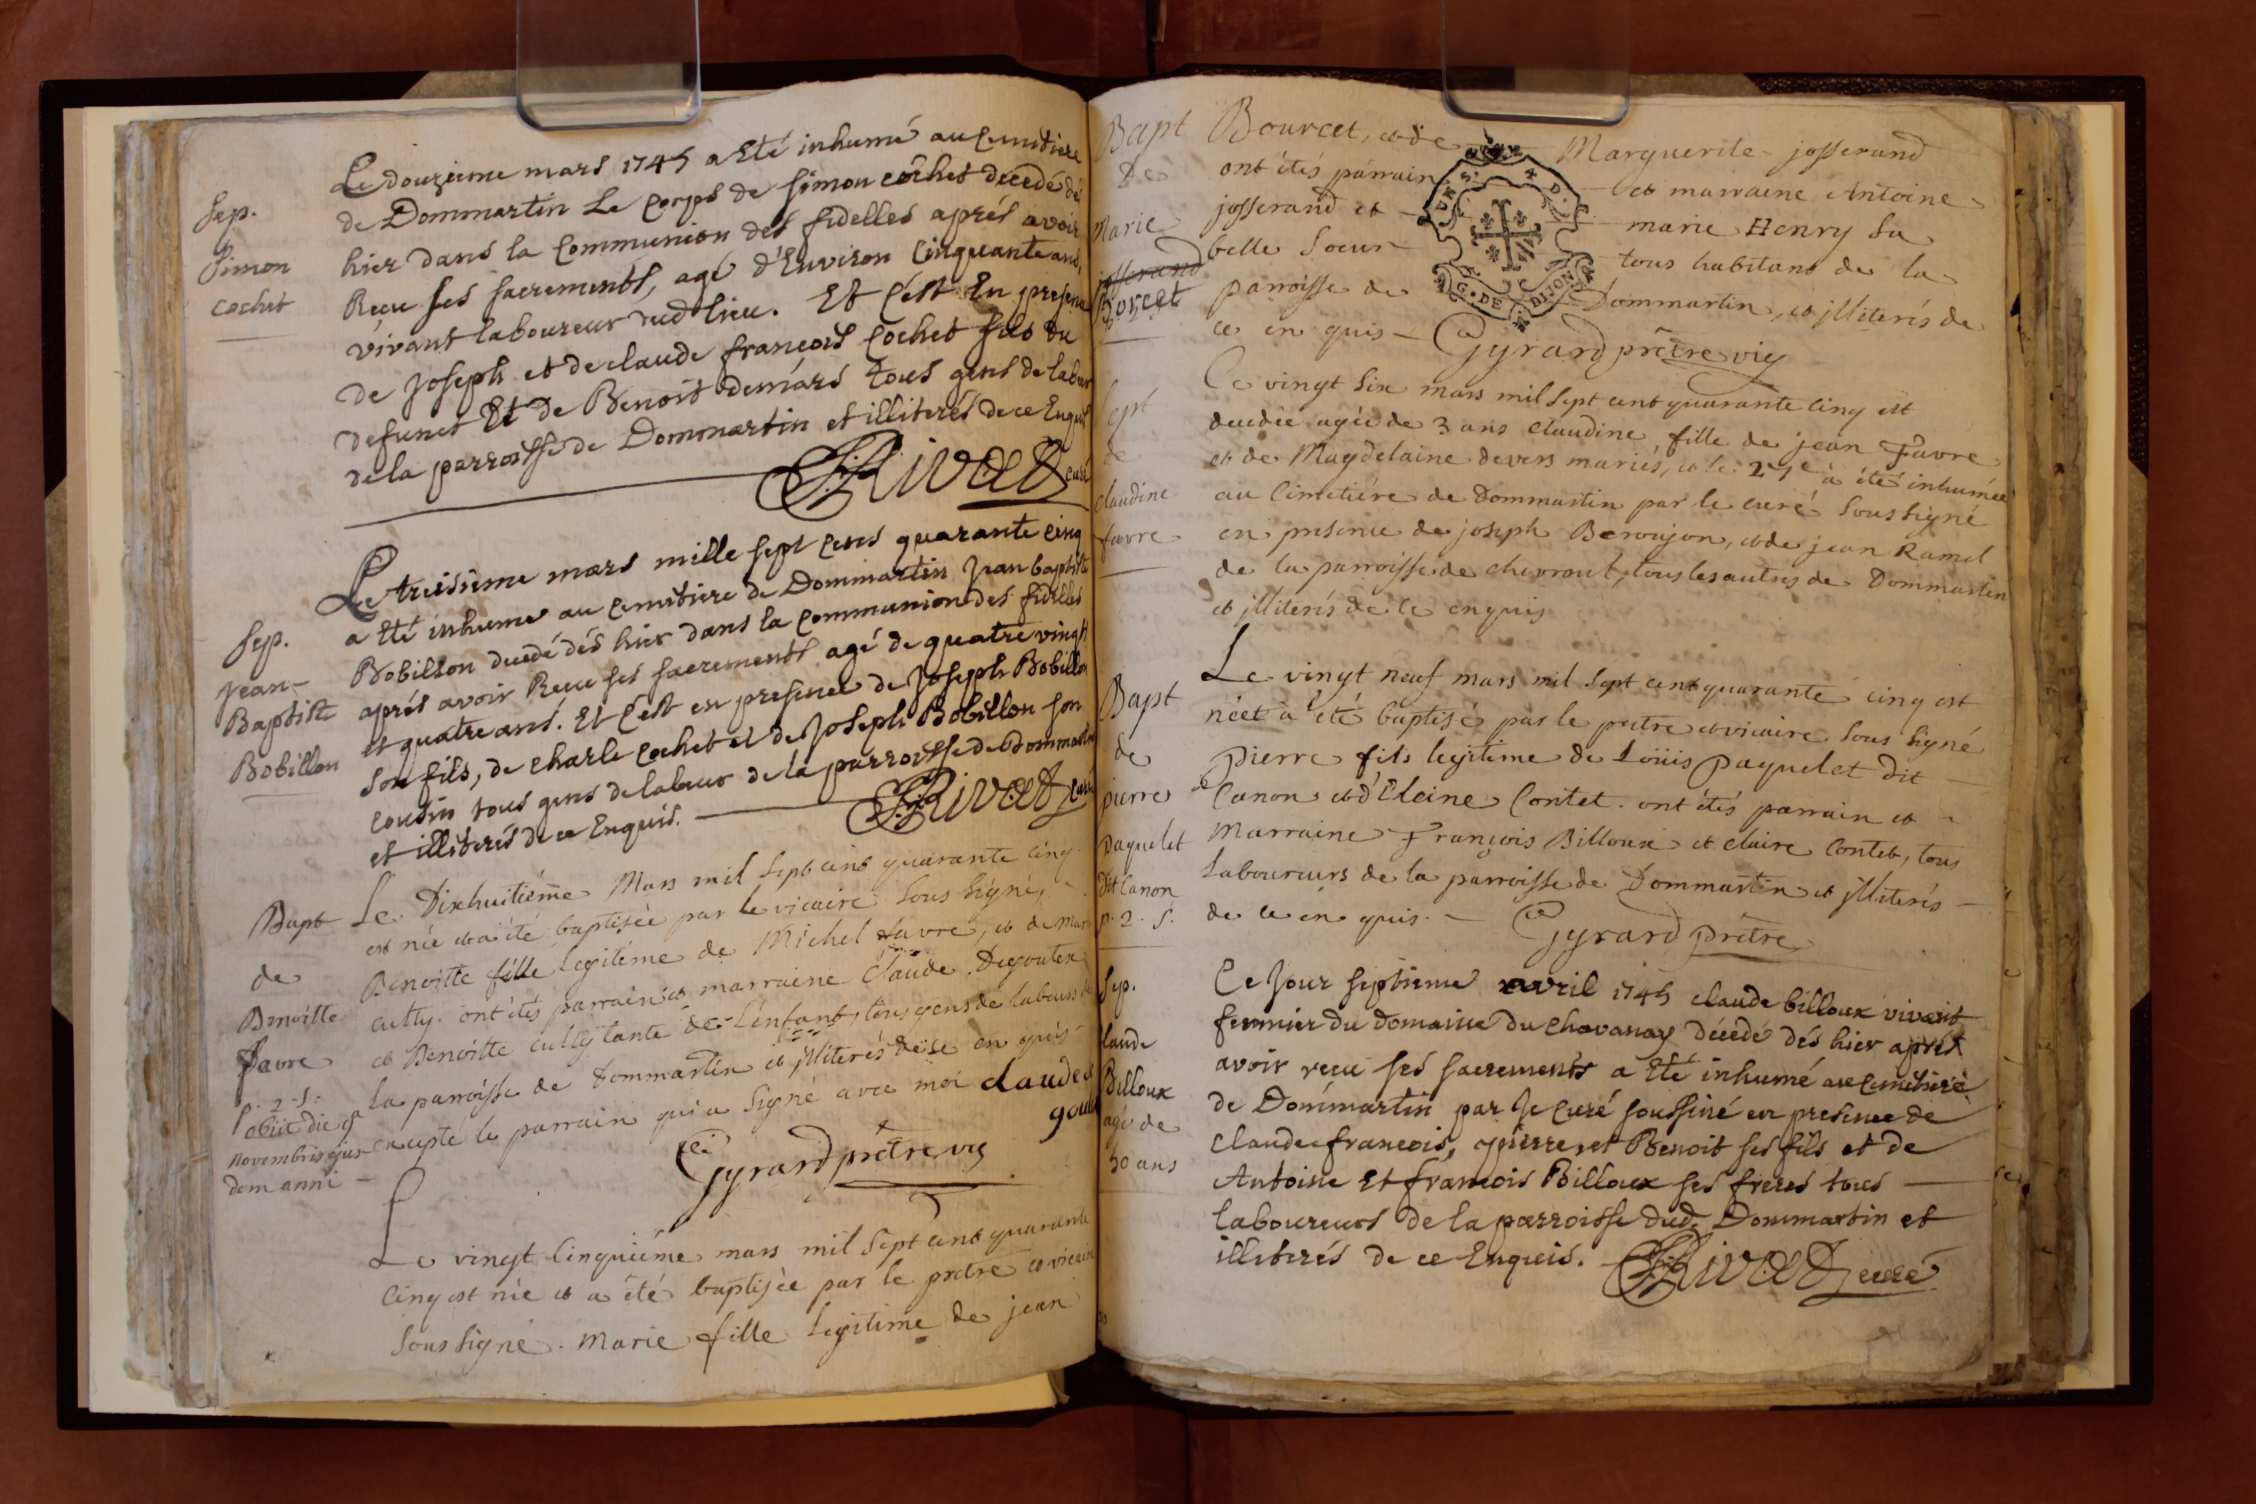 Le douzieme mars 1745 a Eté inhumé au Cemetiere
de Dommartin Le Corps de Simon cochet decedé dés
hier dans la Communion des fidelles aprés avoir
Reçu ses sacrements, agé d'Environ Cinquante ans,
vivant laboureur dud lieu. Et C'est En presence
de Joseph et de claude françois Cochet fils du
defunct Et de Benoit demárs tous gens de labeur
de la parroisse de Dommartin et illiterés de ce Enquis
Rivat curé
Sep.
Simon
cochet
Le treisieme mars mille sept Cens quarante cinq
a Eté inhume au Cemetiere de Dommartin Jean baptiste
Bobillon decedé dés hier dans la Communion des fidelles
aprés avoir Reçu ses sacrements agé de quatre vingt
et quatre ans. Et C'est en presence de Joseph Bobillon
son fils, de charle Cochet et de Joseph Bobillon son
cousin tous gens de labeur de la parroisse de Dommartin
et illiterés de ce Enquis.
Rivat curé
Sep.
Jean
Baptiste
Bobillon
Le Dixhuitiéme Mars mil Sept cent quarante cinq
est née et a été baptisée par le vicaire Sous signé,
Benoitte fille Legitime de Michel favre, et de Marie
cutty. ont étés parrain et marraine Claude Degoutte
et Benoitte cutty tante de L'enfant, tous gens de labeur de
la parroisse de Dommartin et illiterés de ce en quis
excepté le parrain qui a Signé avec moi claude de
goutte
Gyrard prêtre vic
Bapt
de
Benoitte
favre
p. 2. s.
obiit die 9a
novembris ejus
dem anni
Le vingt Cinquiéme mars mil Sept cent quarante
Cinq est née et a été baptisée par le prêtre et vicaire
Sous signé. Marie fille Legitime de jean
Bapt
De
Marie
josserand
Borcet
Bourcet, et de Marguerite josserand
ont étés parrain et marraine Antoine
josserand et marie Henry Sa
belle Soeur tous habitans de la
parroisse de Dommartin, et illiterés de
ce en quis Gyrard prêtre vic
G. DE DIJON
Le vingt Six mars mil Sept cent quarante Cinq est
decedée agée de 3 ans claudine, fille de jean Favre
et de Magdelaine devers mariés, et le 27e a été inhumée
au Cimetiére de Dommartin par le curé Sous signé
en presence de joseph Beroujon, et de jean Ramel
de la parroisse de chevrout, tous les autres de Dommartin
et illiterés de ce enquis
Sept
de
claudine
favre
Le vingt neuf mars mil Sept cent quarante cinq est
né et a été baptisé par le prêtre et vicaire Sous Signé
pierre fils legitime de Loüis paquelet dit
Canon et d'Eleine Contet. ont étés parrain et
Marraine François Billoux et claire Contet, tous
Laboureurs de la parroisse de Dommartin et illiterés
de ce en quis. Gyrard prêtre
Bapt
de
pierre
Paquelet
dit Canon
p. 2. s.
Ce Jour septieme avril 1745 claude billoux vivant
fermier du domaine du chavanay décedé dés hier aprés
avoir reçu ses sacrements a Eté inhumé au Cemetiere
de Dommartin par le Curé soussiné en presence de
claude françois, pierre et Benoit ses fils et de
Antoine Et françois Billoux ses freres tous
laboureurs de la parroisse dud. Dommartin et
illiterés de ce Enquis. Rivat curé
Sep.
claude
Billoux
agé de
50 ans